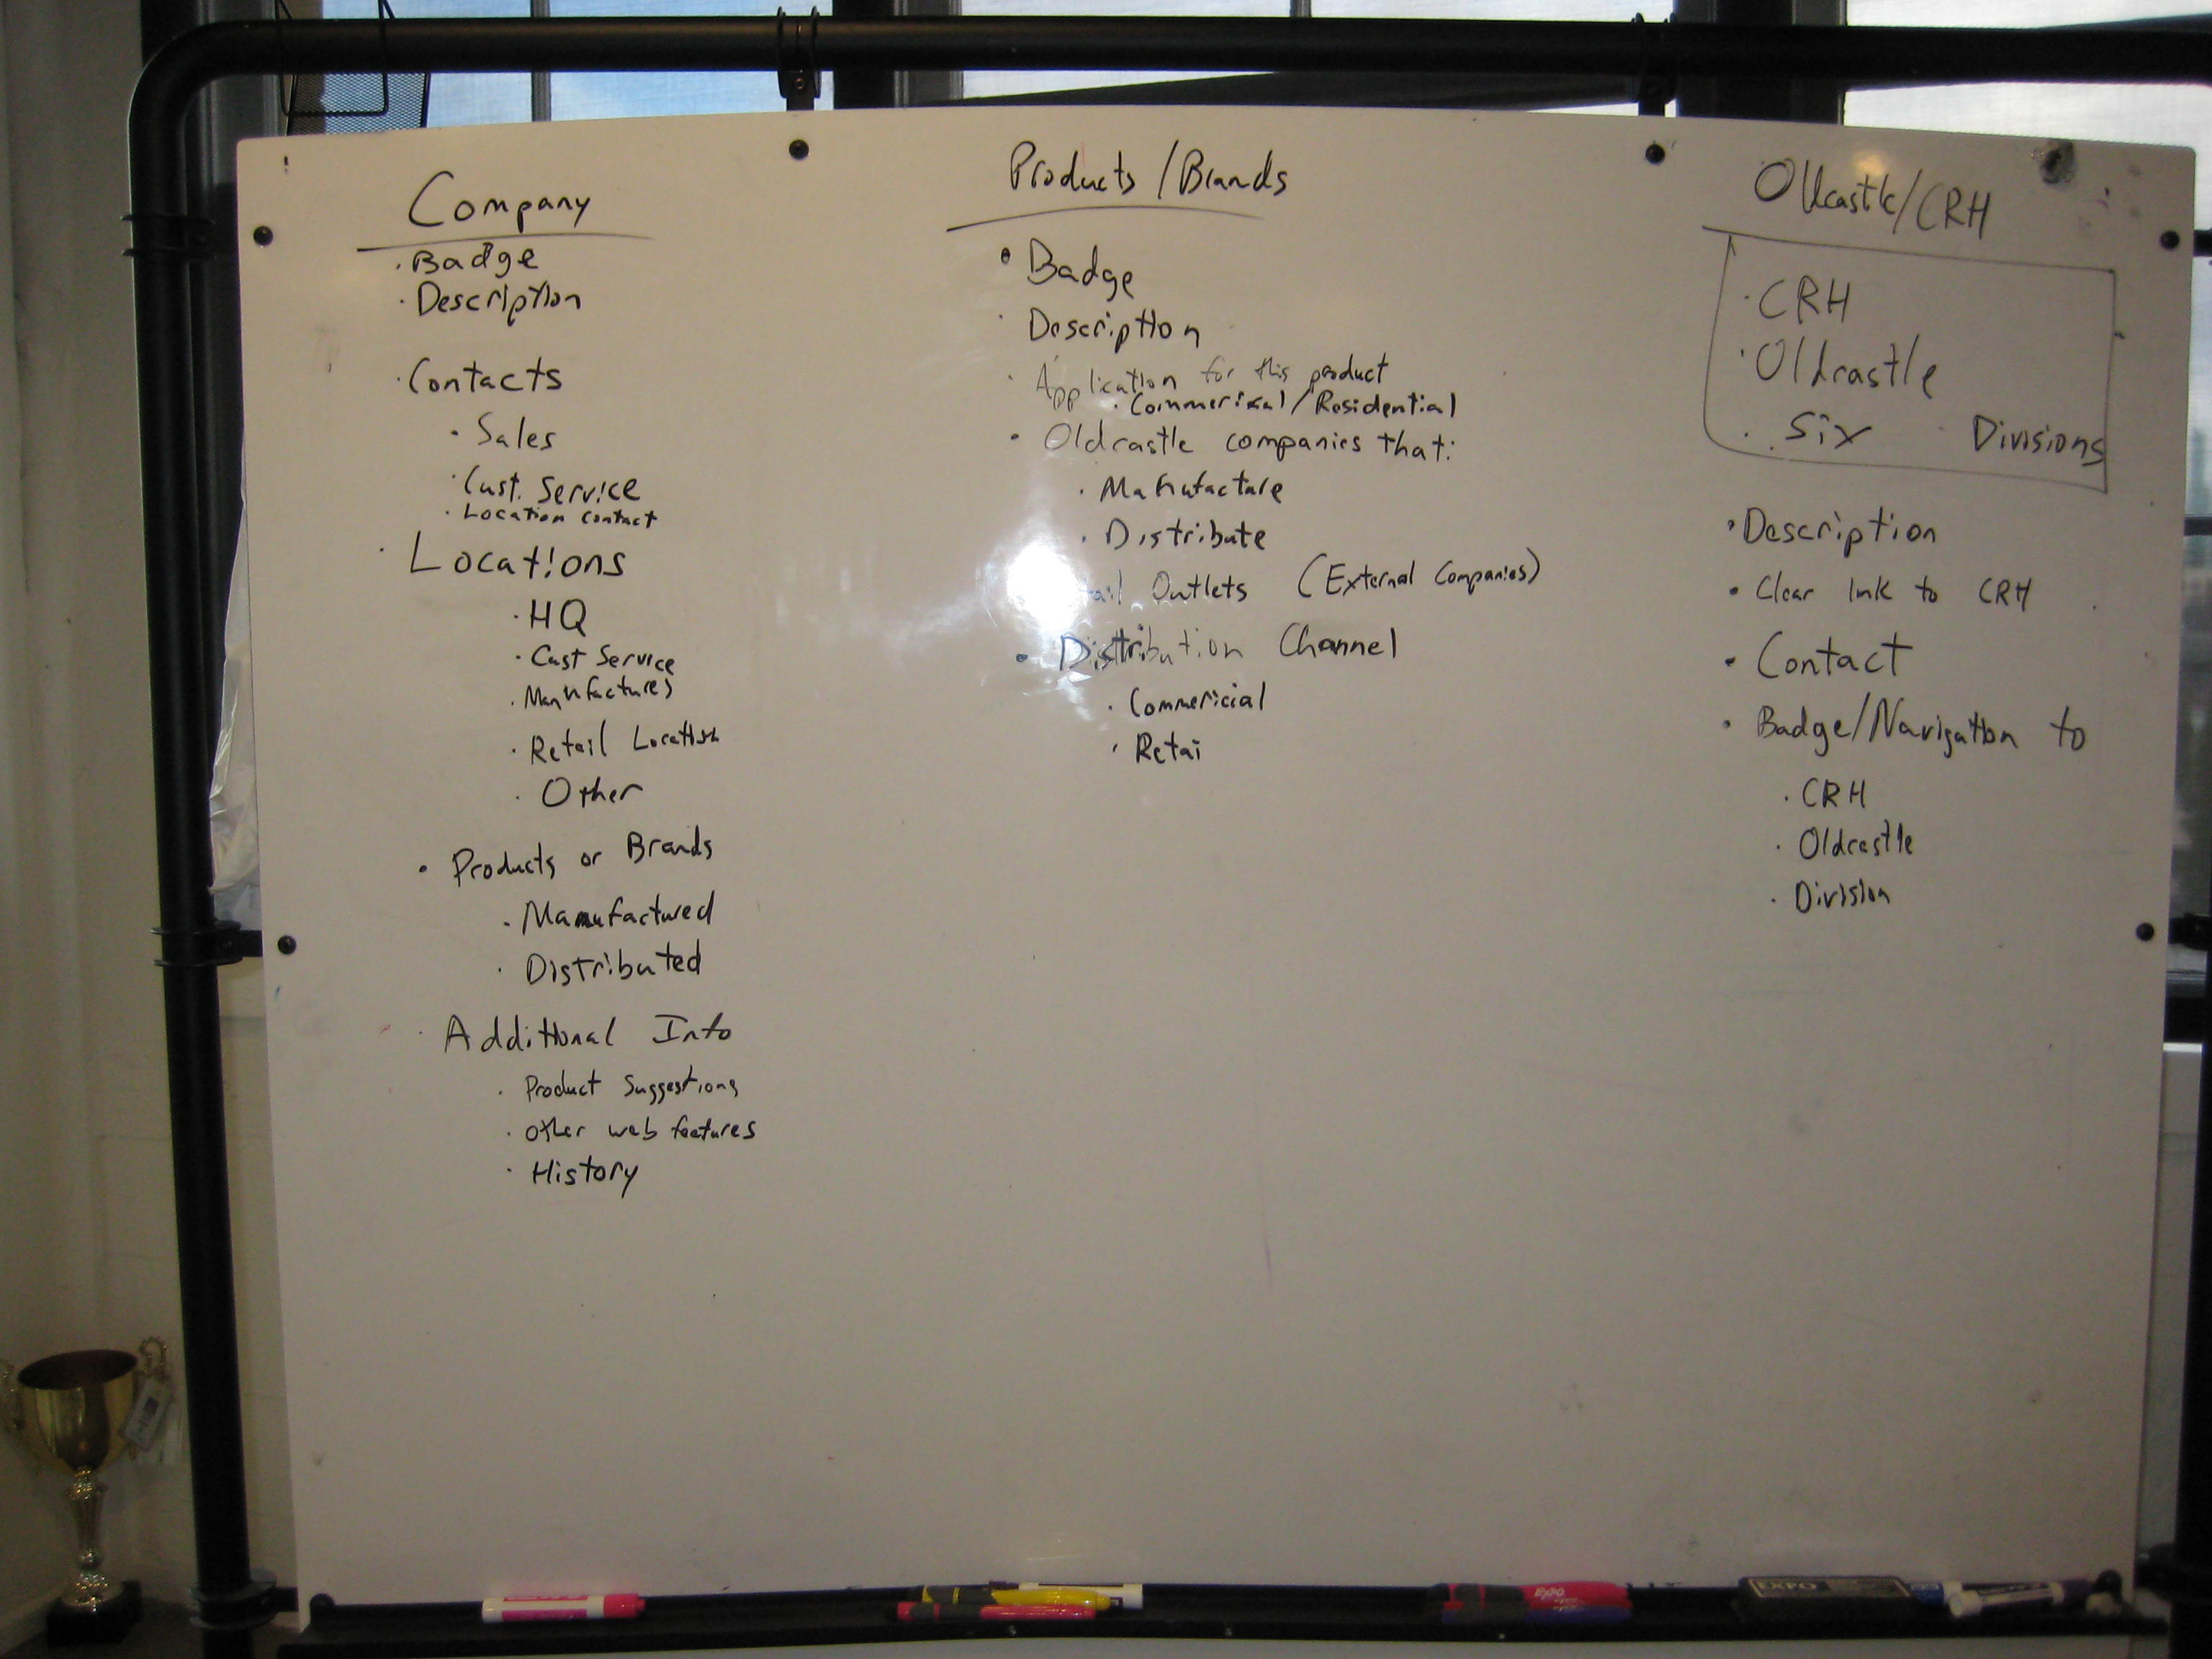 Company
· Badge
· Description
· Contacts
· Sales
· Cust. Service
· Location Contact
· Locations
· HQ
· Cust Service
· Manufactures
· Retail Location
· Other
• Products or Brands
· Manufactured
· Distributed
· Additional Info
· Product Suggestions
· Other web features
· History
Products / Brands
• Badge
· Description
· Application for this product
· Commerical / Residential
• Oldcastle companies that:
· Manufacture
· Distribute
Outlets (External Companies)
• Distribution Channel
· Commericial
· Retai
Oldcastle/CRH
· CRH
· Oldcastle
· Six Divisions
• Description
• Clear link to CRH
• Contact
• Badge/Navigation to
· CRH
· Oldcastle
· Division
EXPO
EXPO